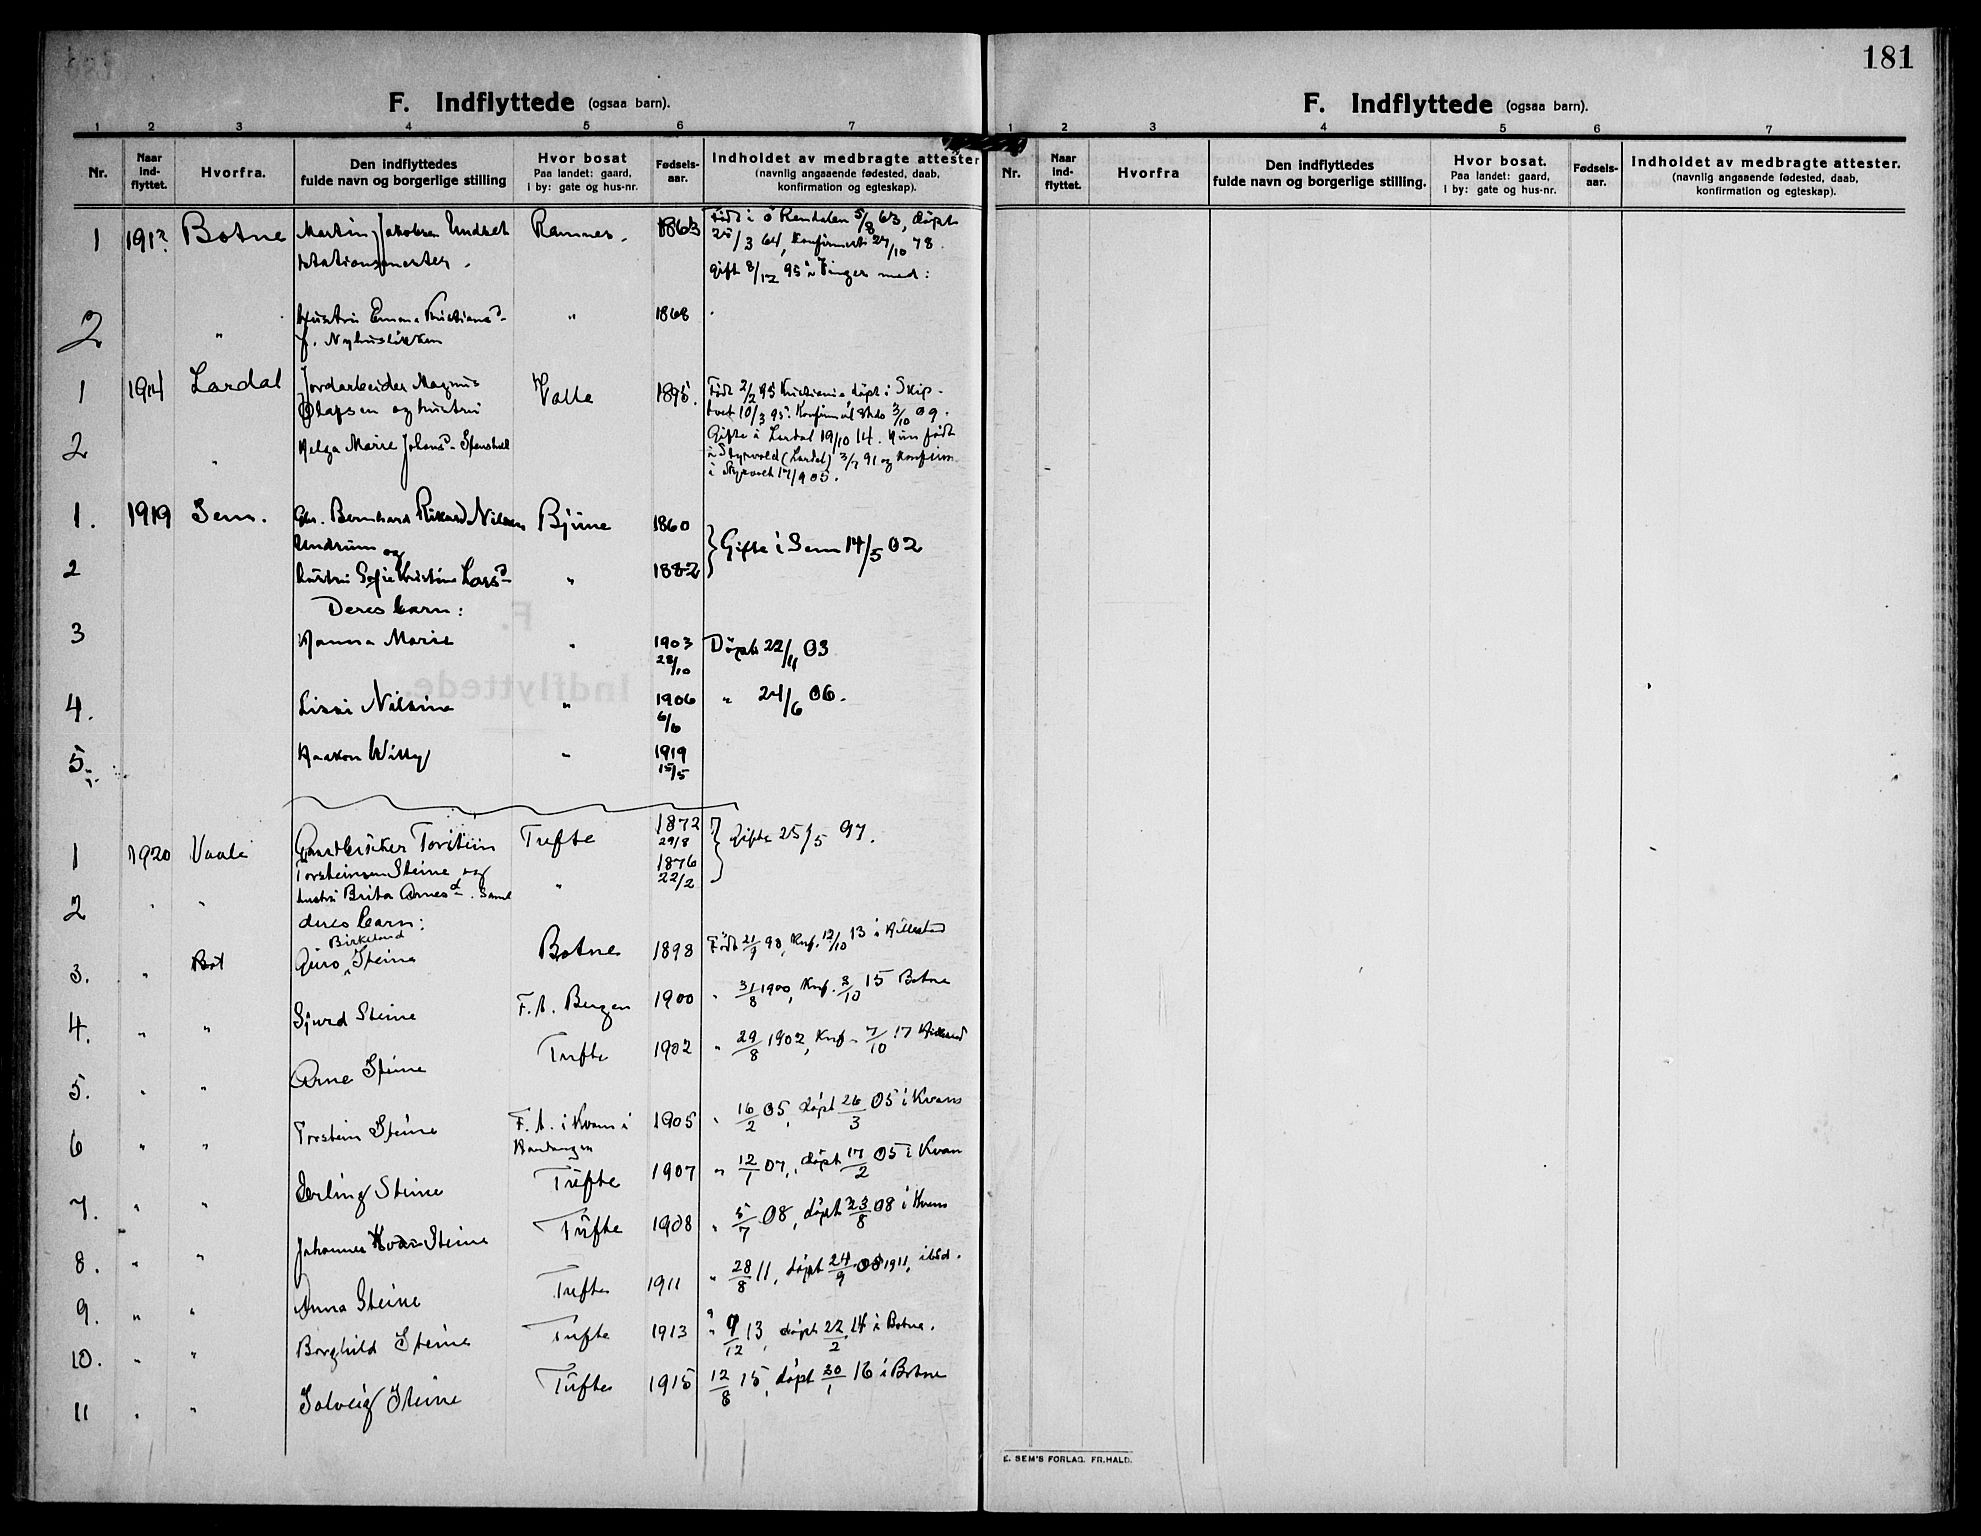 181
F. Indflyttede (ogsaa barn).
1 2 3 4 5 6 7
Nr. Naar ind-flyttet. Hvorfra. Den indflyttedes fulde navn og borgerlige stilling Hvor bosat Paa landet: gaard, I by: gate og hus-nr. Fødsels-aar. Indholdet av medbragte attester (navnlig angaaende fødested, daab, konfirmation og egteskap).
1 191? Botne Martin Jakobsen Undset Ramnes. 1863 Født i Ø Rendalen 5/8 63, døpt
stationsmester. 28/3 64, Konfirmert 27/10 78.
gift 8/12 95 i Vinger med:
2 " Hustru Emma Kristiansd. " 1868
f. Nyhusløkken
1 1914 Lardal Jordarbeider Magnus Valle 1895. Født 2/2 95 Kristiania døpt i Skip-
Olafsen og hustru tvet 10/3 95. 3/10 09.
Gifte i Lardal 19/10 14. Hun født
2 " Helga Marie Johansd. i Styrvold (Lardal) 3/7 91 og konfirm.
i Styrvold 17/9 05.
1. 1919 Sem. Chr. Bernhard Rikard Nilsen Bjune 1860
Undrum og Gifte i Sem 14/5 02
2 hustru Sofie Kristine Larsd. " 1882
Deres barn:
3 Hanna Marie " 1903 28/10 Døpt 22/11 03
4. Lissi Nilsine " 1906 6/6 " 24/6 06.
5. Haakon Willy " 1919 15/5
1 1920 Vaale Gaardbruker Torstein Tufte 1872 29/8 Gifte 25/5 97.
Torsteinsen Steine og 1876 22/2
2 " " hustru Brita Arnesd. "
deres barn:
Birkeland
3. " Bot Guro Steine Botne 1898 Født 21/9 98, Knf. 12/10 13 i Hillestad
4. " " Sjurd Steine F.A. Bergen 1900 " 31/8 1900, Knf. 3/10 15 Botne
5. " " Arne Steine Tufte 1902 " 29/8 1902, Knf. 7/10 17 Hillestad
6 " " Torstein Steine F.A. i Kvam i 1905 " 16/2 05, døpt 26/3 05 i Kvam
Hardanger
7. " " Erling Steine Tufte 1907 " 12/1 07, døpt 17/2 05 i Kvam
8. " " Johannes Steine Tufte 1908 " 5/7 08, døpt 23/8 08 i Kvam
9. " " Anna Steine Tufte 1911 " 28/8 11, døpt 24/9 08 1911, ibid.
10. " " Borghild Steine Tufte 1913 " 9/12 13, døpt 22/2 14 i Botne.
11 " " Solveig Steine Tufte 1915 12/8 15, døpt 30/1 16 i Botne
F. Indflyttede (ogsaa barn).
1 2 3 4 5 6 7
Nr. Naar ind-flyttet. Hvorfra Den indflyttedes fulde navn og borgerlige stilling. Hvor bosat. Paa landet: gaard, I by: gate og hus-nr. Fødsels-aar. Indholdet av medbragte attester. (navnlig angaaende fødested, daab, konfirmation og egteskap).
E. SEM'S FORLAG. FR.HALD.